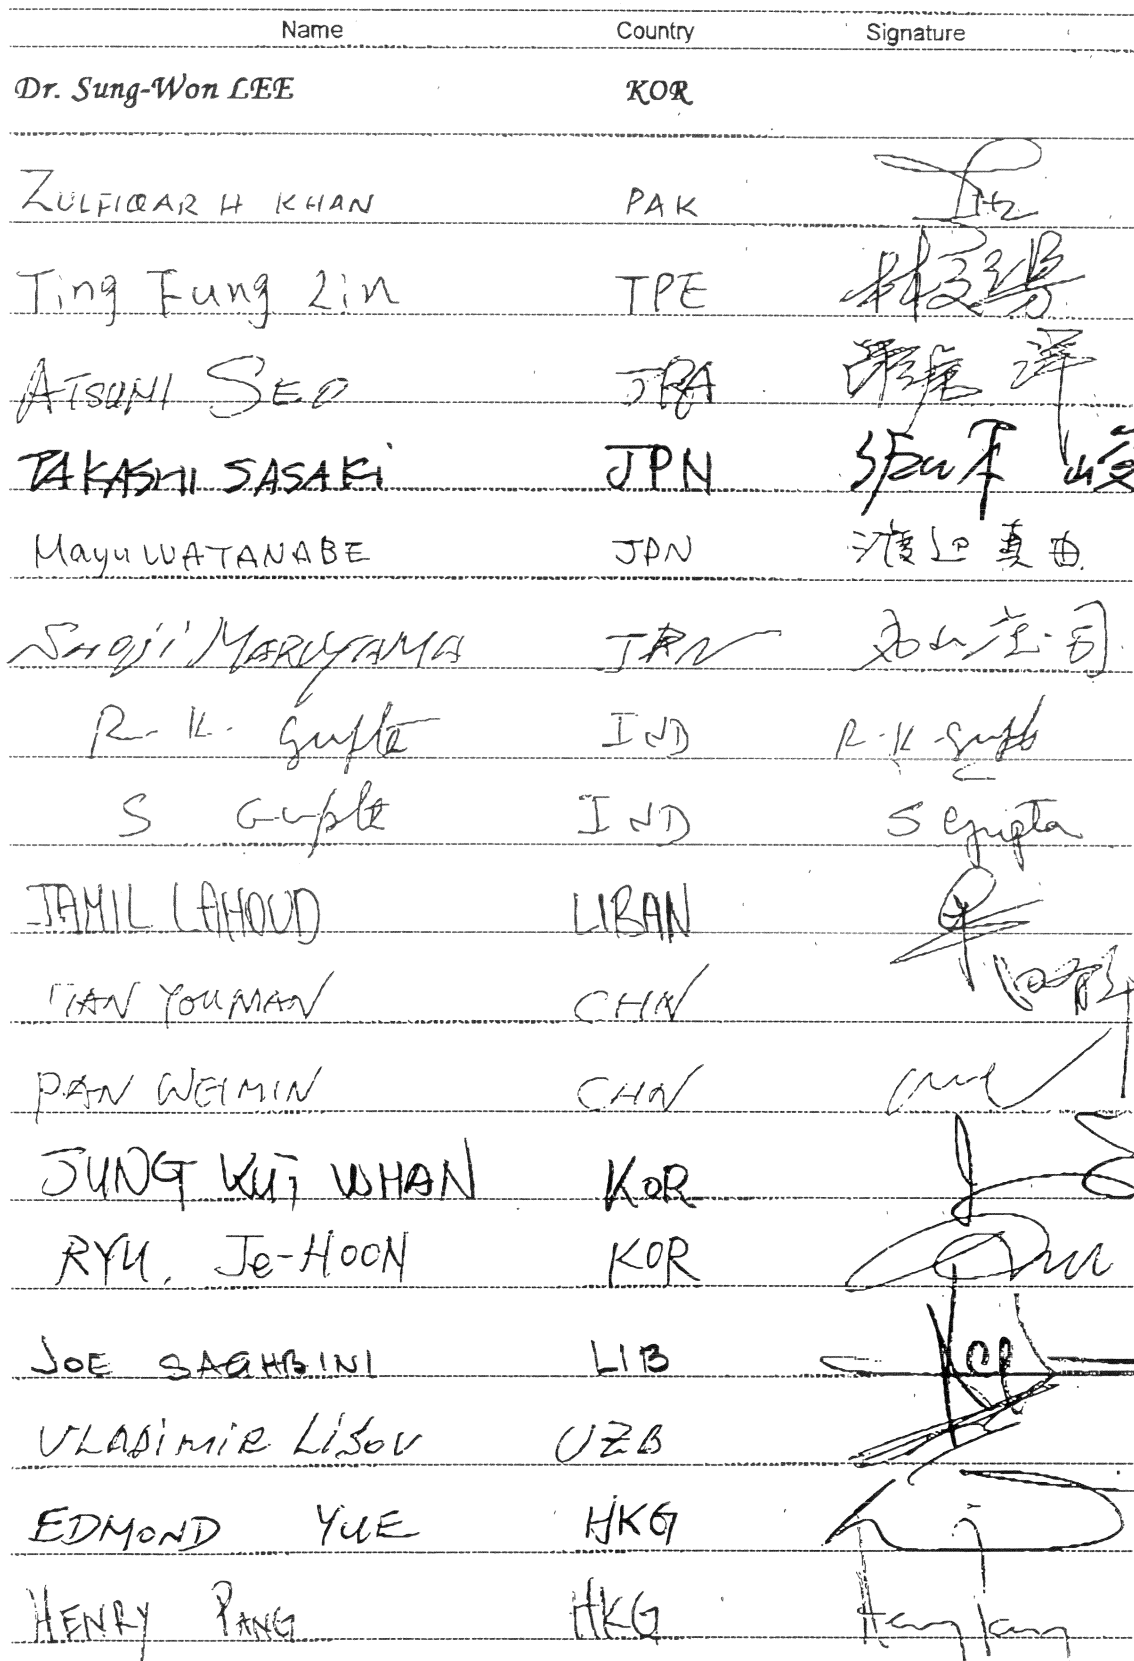 Name Country Signature
Dr. Sung-Won LEE KOR
ZULFIQAR H KHAN PAK
Ting Fung Lin TPE
ATSUMI SEO
TAKASHI SASAKi JPN
Mayu WATANABE JPN 渡辺 真由
SHOJi MARUYAMA JPN 丸山庄司
R. K. Gupta IND R.K. Gupta
S Gupta IND S Gupta
JAMIL LAHOUD LIBAN
YOUMAN CHN
PAN WEIMIN CHN
JUNG KUi WHAN KOR
RYU, Je-HOON KOR
JOE SAGHBINI LIB
VLADiMiR LiSOV UZB
EDMOND YUE HKG
HENRY PANG HKG Henry Pang